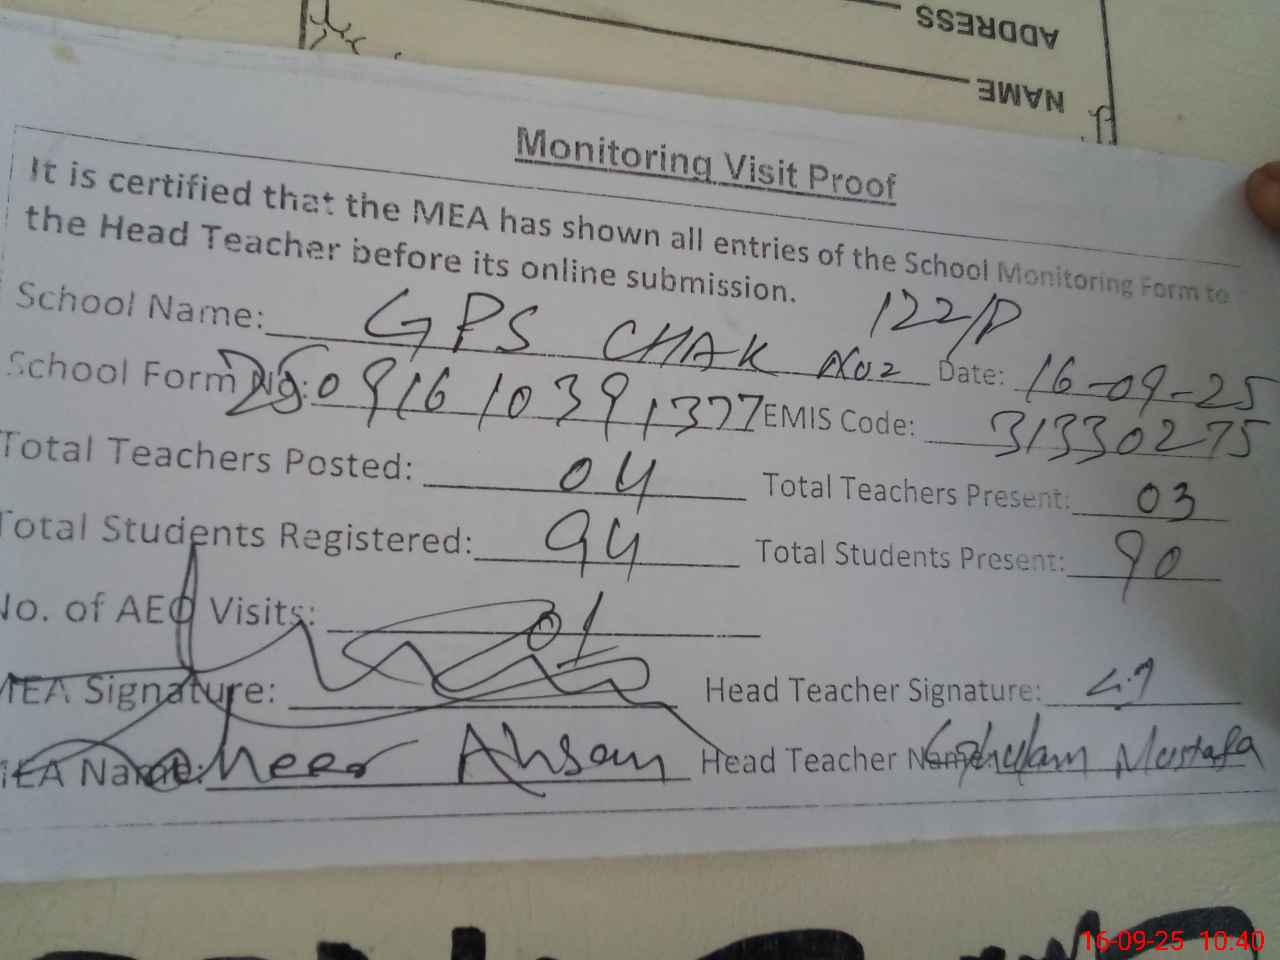 ADDRESS
NAME
Monitoring Visit Proof
It is certified that the MEA has shown all entries of the School Monitoring Form to
the Head Teacher before its online submission.
School Name: GPS CHAK No2 122/P Date: 16-09-25
School Form No: 250916 1039 1377 EMIS Code: 31330275
Total Teachers Posted: 04 Total Teachers Present: 03
Total Students Registered: 94 Total Students Present: 90
No. of AEO Visits: 01
MEA Signature: Head Teacher Signature:
MEA Name: Ahsan Head Teacher Name: Ghullam Mustafa
16-09-25 10:40